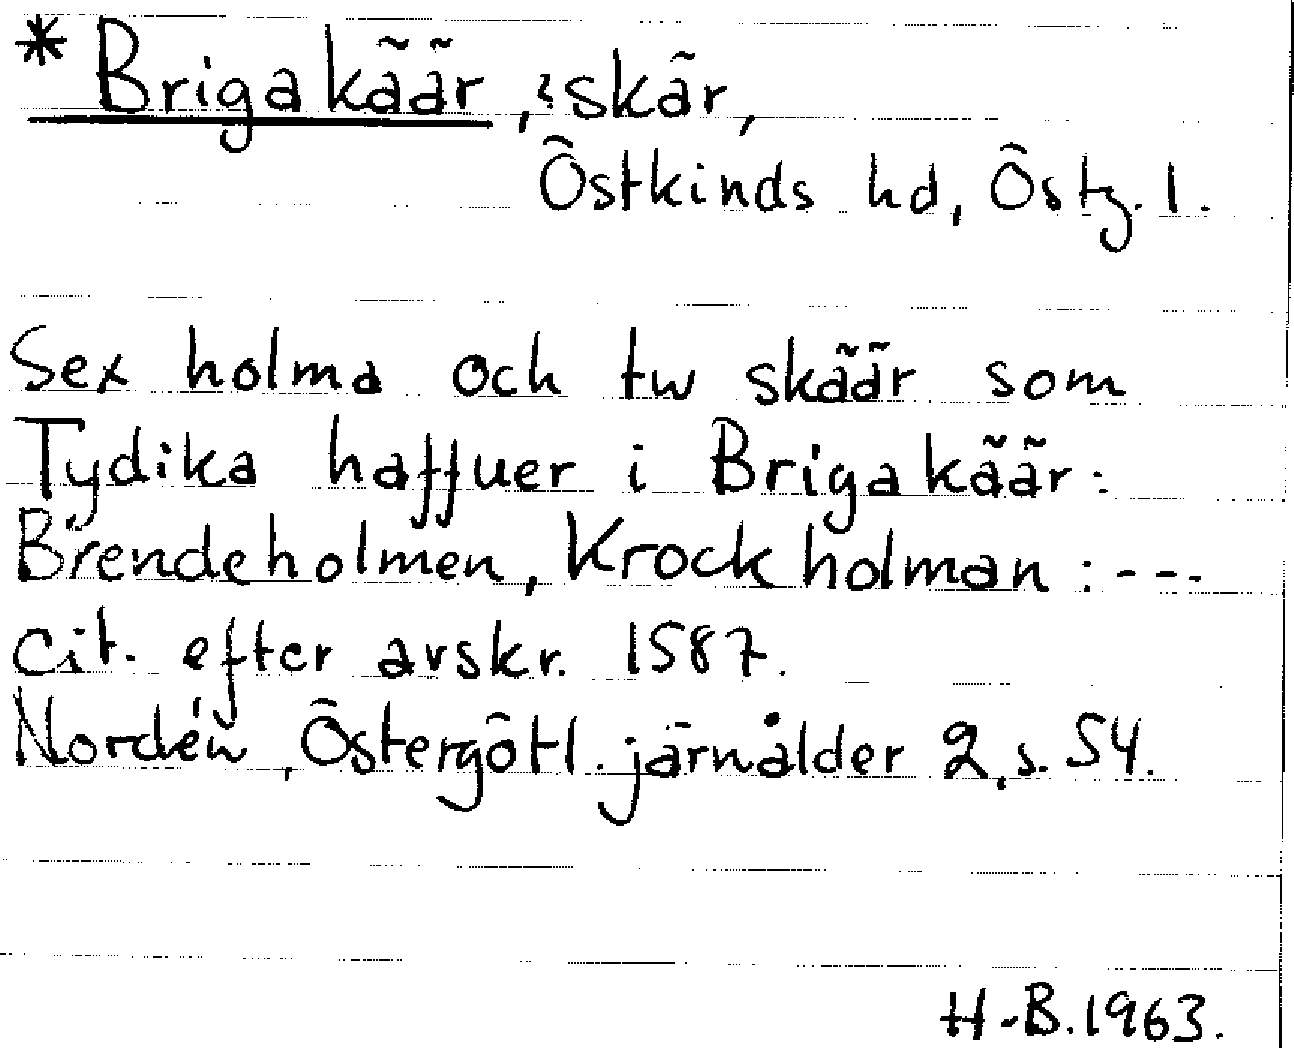 * Brigakäär, ? skär,
Östkinds hd, Östg. l.
Sex holma och tw skäär som
Tydika haffuer i Brigakäär:
Brendeholmen, Krockholman: ---
Cit. efter avskr. 1587.
Nordén, Östergötl. järnålder 2, s. 54.
H-B. 1963.